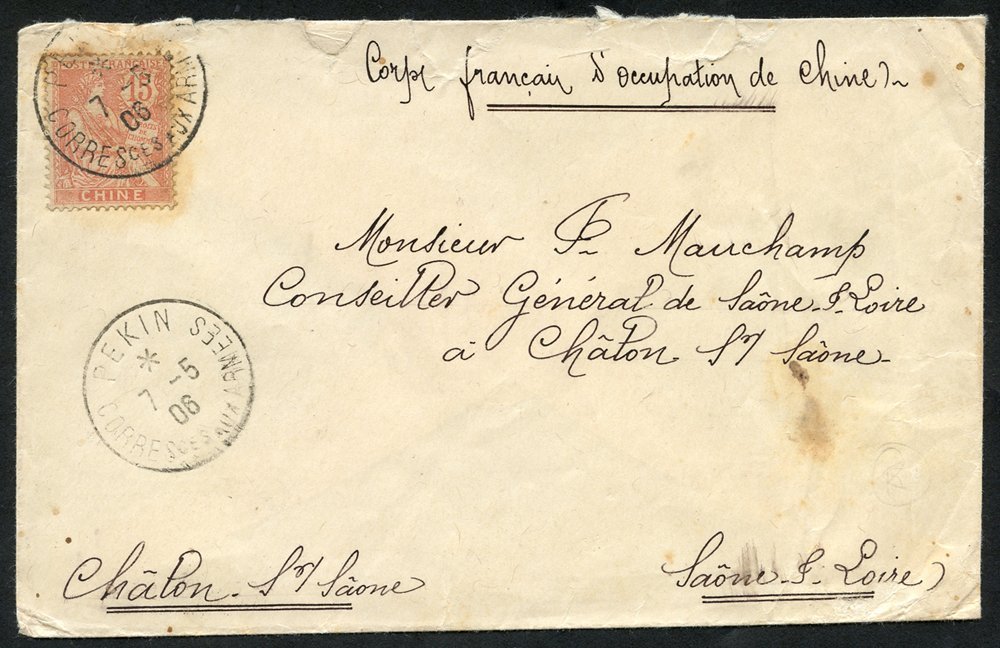 Corps français d'occupation de Chine
POSTE FRANÇAISE
15
CHINE
7 -5
06
CORRESCES AUX ARM
Monsieur F. Mauchamp
Conseiller Général de Saône & Loire
à Châlon s/ Saône
PEKIN CORRESCES AUX ARMEES
* -5
7
06
Châlon s/ Saône
Saône & Loire